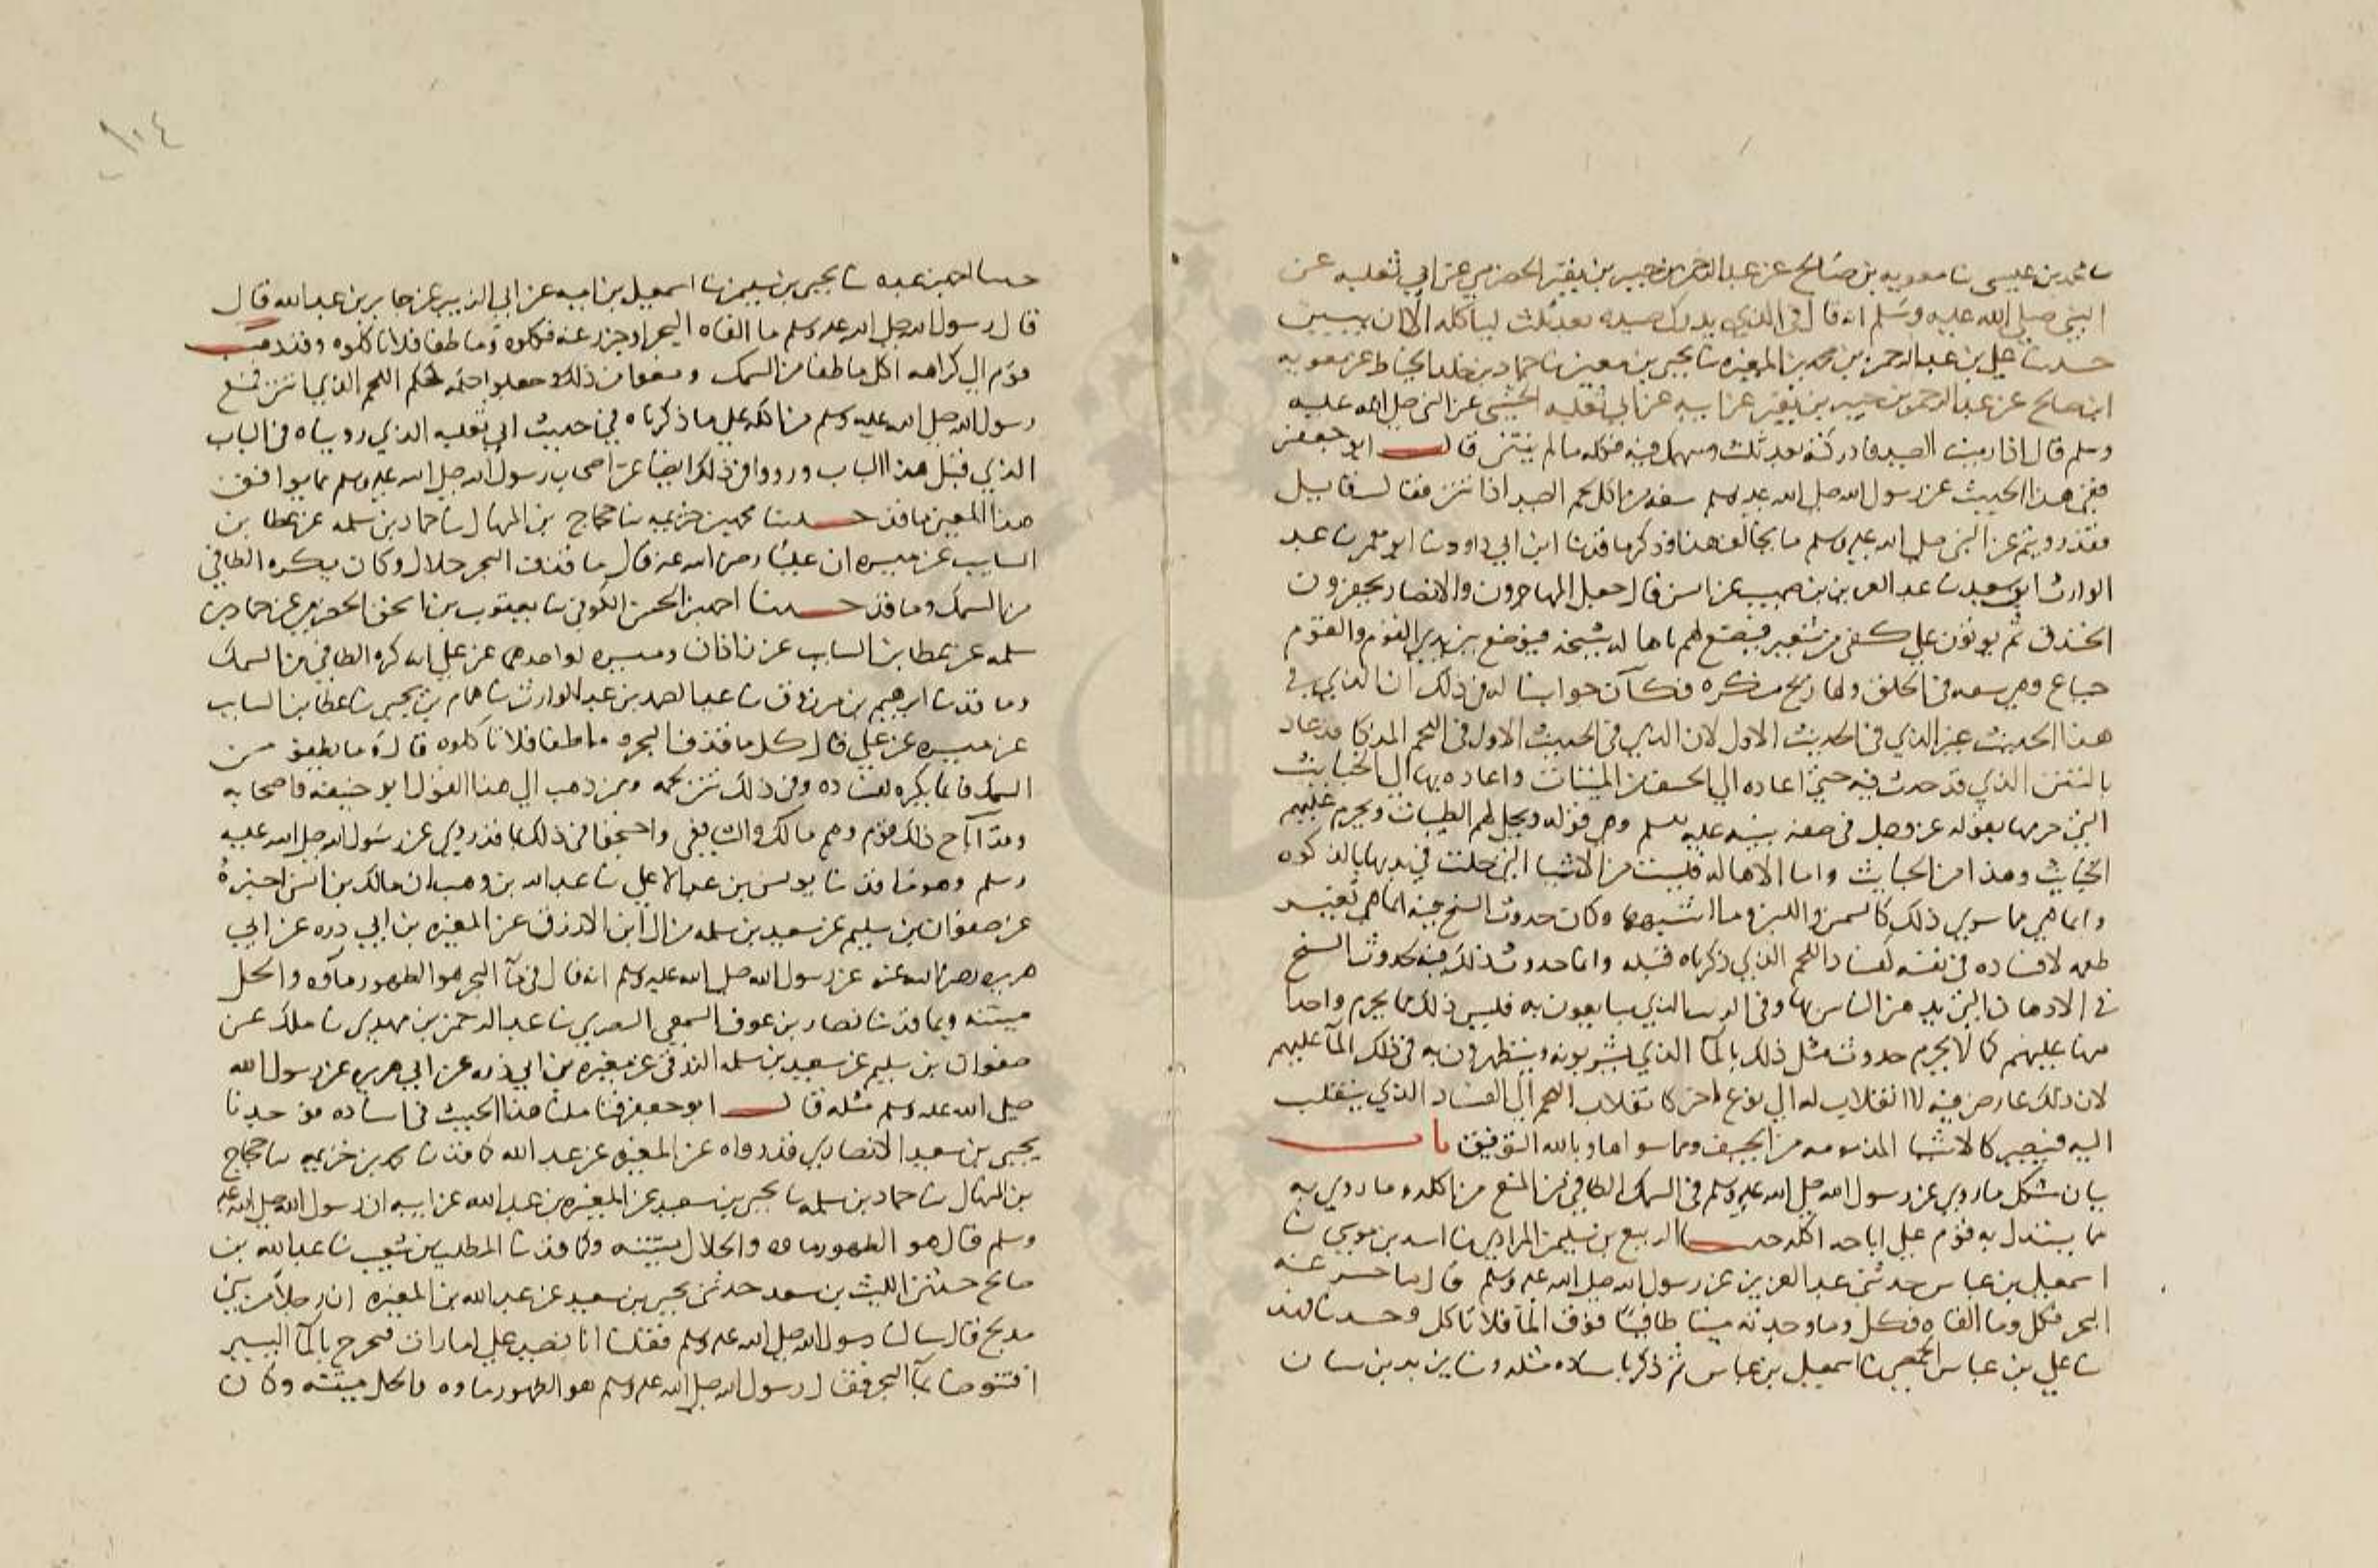 ثنا محمد بن عيسى ثنا معويه بن صالح عن عبد الرحمن بن جبير بن نفير الحضرمي عن ابي ثعلبه عن
النبي صلى الله عليه وسلم انه قال في الذي يدرك صيده بعد ثلث لياكله الا ان ينتن
حدثنا علي بن عبد الرحمن بن محمد بن المغيره ثنا يحيى بن معين ثنا حماد بن خلد الخياط عن معويه
ابن صالح عن عبد الرحمن بن جبير بن نفير عن ابيه عن ابي ثعلبه الخشني عن النبي صلى الله عليه
وسلم قال اذا رميت الصيد فادركته بعد ثلث وسهمك فيه فكله ما لم ينتن قال ابو جعفر
ففي هذا الحديث عن رسول الله صلى الله عليه وسلم منعه من اكل لحم الصيد اذا نتن فقال قايل
فقد رويتم عن النبي صلى الله عليه وسلم ما يخالف هذا وذكر ما قد ثنا ابن ابي داود ثنا ابو معمر ثنا عبد
الوارث ابو سعيد ثنا عبد العزيز بن صهيب عن انس قال جعل المهاجرون والانصار يحفرون
الخندق ثم يوتون على كفي من شعير فيصنع لهم باهاله سنخه فيوضع بين يدي القوم والقوم
جياع وهي بشعه في الحلق ولها ريح منكره فكان جوابنا له في ذلك ان الذي في
هذا الحديث غير الذي في الحديث الاول لان الذي في الحديث الاول في اللحم المذكا قد عاد
بالنتن الذي قد حدث فيه حتى اعاده الى الجيف من الميتات واعاده بها الى الخبايث
التي حرمها بقوله عز وجل في صفه نبيه عليه السلم وهو قوله ويحل لهم الطيبات ويحرم عليهم
الخبايث وهذا من الخبايث واما الاهاله فليست من الاشيا التي حلت في بديها بالذكوه
وانما هي مما سوي ذلك كالسمن واللبن وما اشبهها وكان حدوث السنخ فيه انما هي تغيير
طعمه لا فساده في نفسه كفساد اللحم الذي ذكرناه قبله وانما حدوث ذلك فيه كحدوث السنخ
في الادهان التي يدهن الناس بها وفي الزيت الذي يتبايعون به فليس ذلك مما يحرم واحدا
منها عليهم كما لا يحرم حدوث مثل ذلك بالما الذي يشربونه ويتطهرون به في ذلك الما عليهم
لان ذلك عارض فيه لا انقلاب له الى نوع اخر كانقلاب اللحم الى الفساد الذي ينقلب
اليه فيصير كالاشيا المذمومه من الجيف ومما سواها وبالله التوفيق باب
بيان مشكل ما روي عن رسول الله صلى الله عليه وسلم في السمك الطافي من المنع من اكله وما روي به
مما يستدل به قوم على اباحه اكله حدثنا الربيع بن سليمن المرادي ثنا اسد بن موسى ثنا
اسمعيل بن عياش حدثني عبد العزيز عن رسول الله صلى الله عليه وسلم قال ما حسر عنه
البحر فكل وما القاه فكل وما وجدته ميتا طافيا فوق الما فلا تاكل وحدثنا فهد
ثنا علي بن عياش الحمصي ثنا اسمعيل بن عياش ثم ذكر باسناده مثله وثنا يزيد بن سنان
حدثنا احمد بن عبده ثنا يحيى بن سليمن ثنا اسمعيل بن اميه عن ابي الزبير عن جابر بن عبد الله قال
قال رسول الله صلى الله عليه وسلم ما القاه البحر او جزر عنه فكلوه وما طفا فلا تاكلوه وقد ذهب
قوم الى كراهه اكل ما طفا من السمك ومنعوا من ذلك وجعلوا حكمه كحكم اللحم الذي انتن فمنع
رسول الله صلى الله عليه وسلم من اكله على ما ذكرناه في حديث ابي ثعلبه الذي رويناه في الباب
الذي قبل هذا الباب ورووا في ذلك ايضا عن اصحاب رسول الله صلى الله عليه وسلم مما يوافق
هذا المعنى ما قد حدثنا محمد بن خزيمه ثنا حجاج بن المنهال ثنا حماد بن سلمه عن عطا بن
السايب عن ميسره ان عليا رضي الله عنه قال ما قذف البحر حلال وكان يكره الطافي
من السمك وما قد حدثنا احمد بن الحسن الكوفي ثنا يعقوب بن اسحق الحضرمي عن حماد بن
سلمه عن عطا بن السايب عن زاذان وميسره او احدهما عن علي انه كره الطافي من السمك
وما قد ثنا ابرهيم بن مرزوق ثنا عبد الصمد بن عبد الوارث ثنا همام بن يحيى ثنا عطا بن السايب
عن ميسره عن علي قال كل ما قذف البحر وما طفا فلا تاكلوه قالوا ما يطفو من
السمك فانما يكره لفساده وفي ذلك نتن لحمه وممن ذهب الى هذا القول ابو حنيفه واصحابه
وقد اباح ذلك قوم وهم مالك والشافعي واحتجوا في ذلك بما قد روي عن رسول الله صلى الله عليه
وسلم وهو ما قد ثنا يونس بن عبد الاعلى ثنا عبد الله بن وهب ان مالك بن انس اخبره
عن صفوان بن سليم عن سعيد بن سلمه من ال ابن الازرق عن المغيره بن ابي برده عن ابي
هريره رضي الله عنه عن رسول الله صلى الله عليه وسلم انه قال في ما البحر هو الطهور ماوه والحل
ميتته وبما قد ثنا نصار بن عوف السمعي البصري ثنا عبد الرحمن بن مهدي ثنا ملك عن
صفوان بن سليم عن سعيد بن سلمه الزرقي عن مغيره بن ابي برده عن ابي هريره عن رسول الله
صلى الله عليه وسلم مثله قال ابو جعفر فتاملنا هذا الحديث في اسناده فوجدنا
يحيى بن سعيد الانصاري قد رواه عن المغيره عن عبد الله كما قد ثنا محمد بن خزيمه ثنا حجاج
بن المنهال ثنا حماد بن سلمه ثنا يحيى بن سعيد عن المغيره بن عبد الله عن ابيه ان رسول الله صلى الله عليه
وسلم قال هو الطهور ماوه والحلال ميتته وكما قد ثنا المطلب بن شعيب ثنا عبد الله بن
صالح حدثني الليث بن سعد حدثني يحيى بن سعيد عن عبد الله بن المغيره ان رجلا من بني
مدلج قال سالنا رسول الله صلى الله عليه وسلم فقلنا انا نصيد على ارماث فنخرج بالما اليسير
افنتوضا بما البحر فقال رسول الله صلى الله عليه وسلم هو الطهور ماوه والحل ميتته وكان